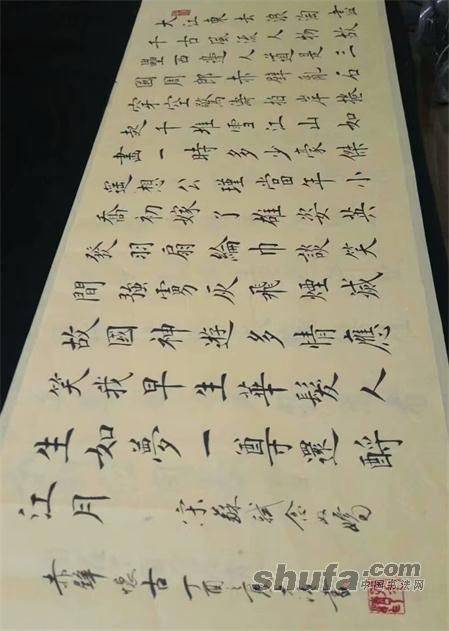 大江東去浪淘盡
千古風流人物故
壘西邊人道是三
國周郎赤壁亂石
穿空驚濤拍岸捲
起千堆雪江山如
畫一時多少豪傑
遙想公瑾當年小
喬初嫁了雄姿英
發羽扇綸巾談笑
間強虜灰飛煙滅
故國神遊多情應
笑我早生華髮人
生如夢一尊還酹
江月 宋蘇軾念奴嬌
赤壁懷古 丁酉夏
shufa.com
中国书法网